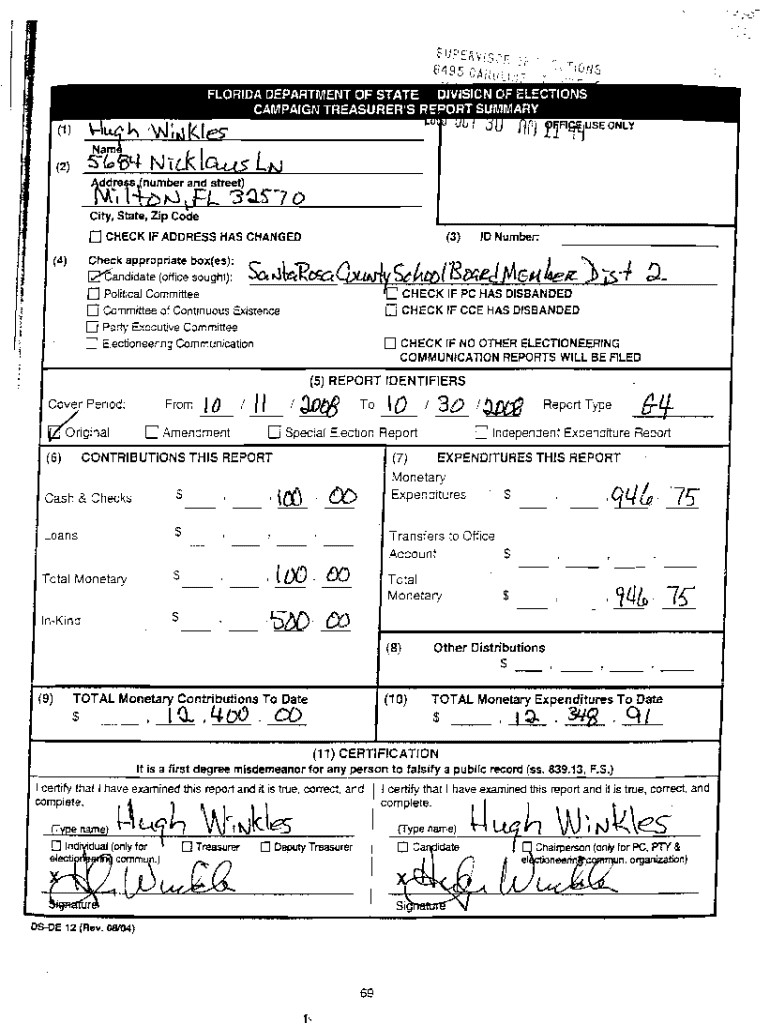 SUPERVISOR OF ELECTIONS
6495
FLORIDA DEPARTMENT OF STATE DIVISION OF ELECTIONS
CAMPAIGN TREASURER'S REPORT SUMMARY
(1) Hugh Winkles
Name
OFFICE USE ONLY
(2) 5684 Nicklaus LN
Address (number and street)
Milton, FL 32570
City, State, Zip Code
CHECK IF ADDRESS HAS CHANGED
(3) ID Number:
(4) Check appropriate box(es):
Candidate (office sought): Santa Rosa County School Board Member Dist 2
Political Committee CHECK IF PC HAS DISBANDED
Committee of Continuous Existence CHECK IF CCE HAS DISBANDED
Party Executive Committee
Electioneering Communication CHECK IF NO OTHER ELECTIONEERING
COMMUNICATION REPORTS WILL BE FILED
(5) REPORT IDENTIFIERS
Cover Period: From 10 / 11 / 2008 To 10 / 30 / 2008 Report Type G4
Original Amendment Special Election Report Independent Expenditure Report
(6) CONTRIBUTIONS THIS REPORT
Cash & Checks $ , , 100 . 00
Loans $ , , .
Total Monetary $ , , 100 . 00
In-Kind $ , , 500 . 00
(7) EXPENDITURES THIS REPORT
Monetary
Expenditures $ , , 946 . 75
Transfers to Office
Account $ , , .
Total
Monetary $ , , 946 . 75
(8) Other Distributions
$ , , .
(9) TOTAL Monetary Contributions To Date
$ , 12 , 400 . 00
(10) TOTAL Monetary Expenditures To Date
$ , 12 , 348 . 91
(11) CERTIFICATION
It is a first degree misdemeanor for any person to falsify a public record (ss. 839.13, F.S.)
I certify that I have examined this report and it is true, correct, and
complete.
Hugh Winkles
(Type name)
Individual (only for Treasurer Deputy Treasurer
electioneering commun.)
X Hugh Winkles
Signature
I certify that I have examined this report and it is true, correct, and
complete.
Hugh Winkles
(Type name)
Candidate Chairperson (only for PC, PTY &
electioneering commun. organization)
X Hugh Winkles
Signature
DS-DE 12 (Rev. 08/04)
69